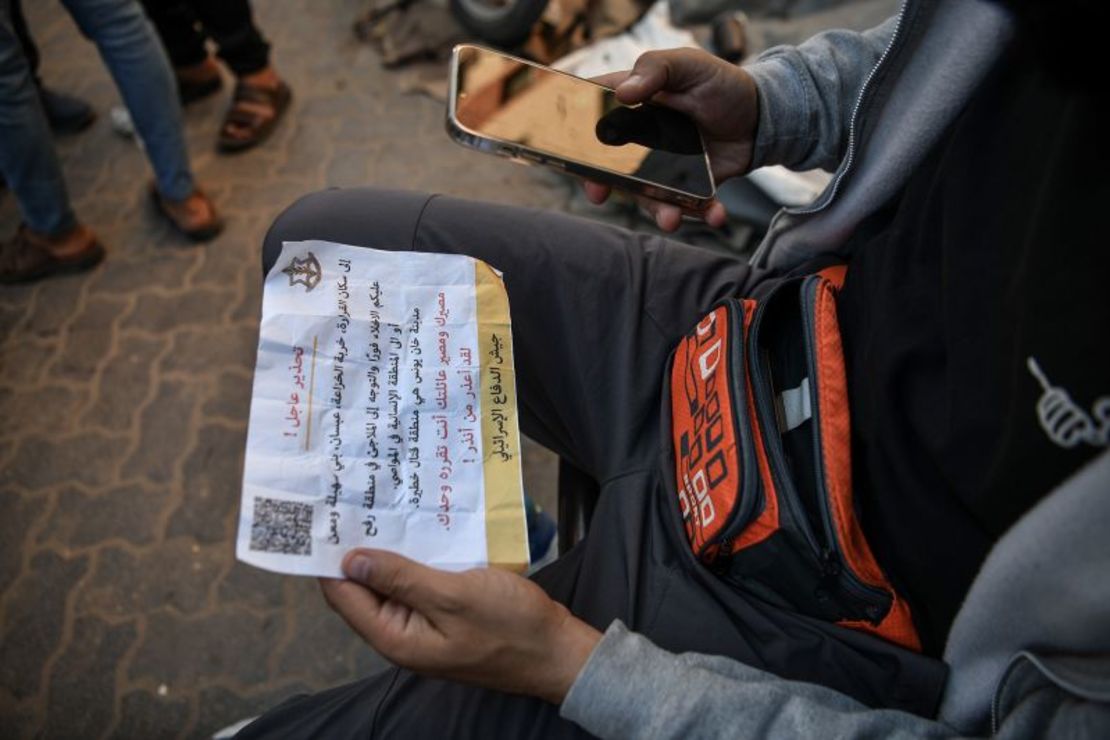 تحذير عاجل !
إلى سكان القرارة، خربة الخزاعة، عبسان، بني سهيلة ومعن
عليكم الاخلاء فورًا والتوجه إلى الملاجئ في منطقة رفح
أو الى المنطقة الإنسانية في المواصي.
مدينة خان يونس هي منطقة قتال خطيرة.
مصيرك ومصير عائلتك أنت تقرره وحدك.
لقد أعذر من أنذر !
جيش الدفاع الإسرائيلي